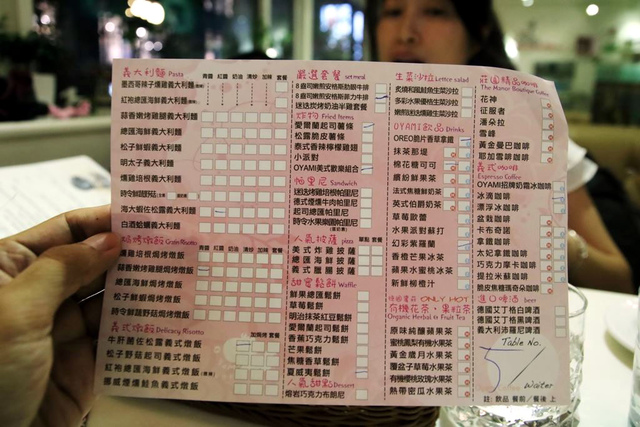 義大利麵 Pasta
青醬 紅醬 奶油 清炒 加辣 套餐
墨西哥辣子燻雞義大利麵
紅袍總匯海鮮義大利麵
蒜香嫩煎雞腿義大利麵
總匯海鮮義大利麵
松子鮮蝦義大利麵
明太子義大利麵
燻雞培根義大利麵
時令鮮蔬野菇
海大蝦佐松露義大利麵
白酒蛤蠣義大利麵
焗烤燉飯 Gratin Risotto
青醬 紅醬 奶油 加辣 套餐
燻雞培根焗烤燉飯
蒜香嫩煎雞腿焗烤燉飯
總匯海鮮焗烤燉飯
松子鮮蝦焗烤燉飯
時令鮮蔬野菇焗烤燉飯
義式燉飯 Delicacy Risotto
加焗烤 套餐
牛肝蕈佐松露義式燉飯
松子野菇起司義式燉飯
紅袍總匯海鮮義式燉飯
挪威煙燻鮭魚義式燉飯
嚴選套餐 set meal
8盎司嫩煎安格斯肋眼牛排
8盎司嫩煎安格斯菲力牛排
迷迭炭烤奶油半雞套餐
炸物 Fried Items
愛爾蘭起司薯條
松露脆皮薯條
泰式香辣檸檬雞翅
小派對
OYAMI美式歡樂組合
帕里尼 Sandwich
迷迭烤雞彩蔬帕里尼
德式煙燻牛肉帕里尼
起司總匯帕里尼
時令水果樂園帕里尼
人氣披薩 pizza
單點 套餐
美式炸雞披薩
總匯海鮮披薩
義式臘腸披薩
甜蜜鬆餅 Waffle
鮮果總匯鬆餅
草莓鬆餅
明治抹茶紅豆鬆餅
愛爾蘭起司鬆餅
香蕉巧克力鬆餅
芒果鬆餅
焦糖香草鬆餅
夏威夷鬆餅
人氣甜點 Dessert
熔岩巧克力布朗尼
生菜沙拉 Lettce salad
炙燒和風鮭魚生菜沙拉
多彩水果優格生菜沙拉
嫩煎迷迭燻雞生菜沙拉
OYAMI飲品 Drinks
OREO脆片香草拿鐵
抹茶那堤
棉花糖可可
繽紛鮮果茶
法式焦糖鮮奶茶
英式伯爵奶茶
草莓歐蕾
水果派對蘇打
幻彩紫薩蘭
香橙芒果冰茶
蘋果水蜜桃冰茶
新鮮柳橙汁
ONLY HOT
有機花茶、果粒茶
Organic Herbal & Fruit Tea
原味純釀蘋果茶
蜜桃鳳梨有機水果茶
黃金歲月水果茶
覆盆子草莓水果茶
有機櫻桃玫瑰水果茶
熱帶密瓜水果茶
莊園精品咖啡
The Manor Boutique Coffee
花神
征服者
潘朵拉
雪峰
黃金曼巴咖啡
耶加雪啡咖啡
義式咖啡
Espresso Coffee
OYAMI招牌奶霜冰咖啡
冰滴咖啡
漂浮冰咖啡
盆栽咖啡
卡布奇諾
拿鐵咖啡
太妃拿鐵
巧克力摩卡咖啡
提拉米蘇咖啡
脆皮焦糖瑪奇朵咖啡
進口啤酒 beer
德國艾丁格白啤酒
德國艾丁格黑啤酒
義大利沛羅尼啤酒
Table No.
5
Waiter
註 飲品 餐前／餐後 上